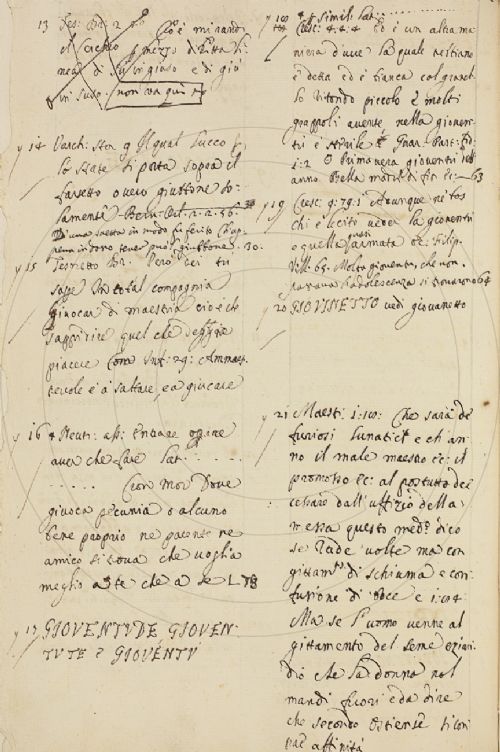 13
Cioè mirando
il cerchio
mezzo diritta li
nea di su in giuso e di giù
in suso. non va qui
y 14 Varch: Sto: 9 Il qual Lucco
la State si porta sopra il
farsetto overo giubbone so-
lamente Bern: Orl: 2. 2. 56.
D'una saetta in modo fu ferito
pena indosso tener può il giubbone. 30.
y 15
sagge In total compagnia
giucar di maestria cio è che
sappi dire quel che deggie
piacere Com: Inf: 29: Ammaes
tevole è a saltare, e a giucare
y 16 Neutr: ass: Entrare
aver che fare Lat: . . . . . .
Cron Mor Dove
giuoca pecunia o alcuno
bene proprio ne parente ne
amico si trova che voglia
meglio a te che a se
y 17 GIOVENTUDE GIOVEN-
TUTE e GIOVENTÙ
y 18 Simil: Lat: . . . . . .
Cresc: 4. 4. 4 Ed è un altra ma
niera d'uve la quale
è detta ed è bianca col granel
lo ritondo piccolo e molti
grappoli avente nella gioven-
tù è sterile Guar: Past: Fid:
1: 2 O Primavera gioventù dell'
anno Bella madre di fior &c: - 63
y 19 Cresc: 9: 79: 1 Adunque
chi è lecito veder la gioventù
e quella armata &c: Filip.
Vill: 63. Molta gioventù, che non
passava l'adolescenza si trovarono 64
y 20 GIOVINETTO vedi giovanetto
y 21 Maestr: 1: Che sarà de
furiosi lunatici e ch'an
no il male maestro &c: il
promosso &c: al postutto dee
cessare dall'uffizio della
messa questo med.º dico
se rade volte ma con
gittam.to di schiuma e con
fusione di boce e 1:
Ma se l'uomo venne al
gittamento del seme
diò che la donna nol
mandi fuori è da dire
che secondo Ostiense si con
trae affinità